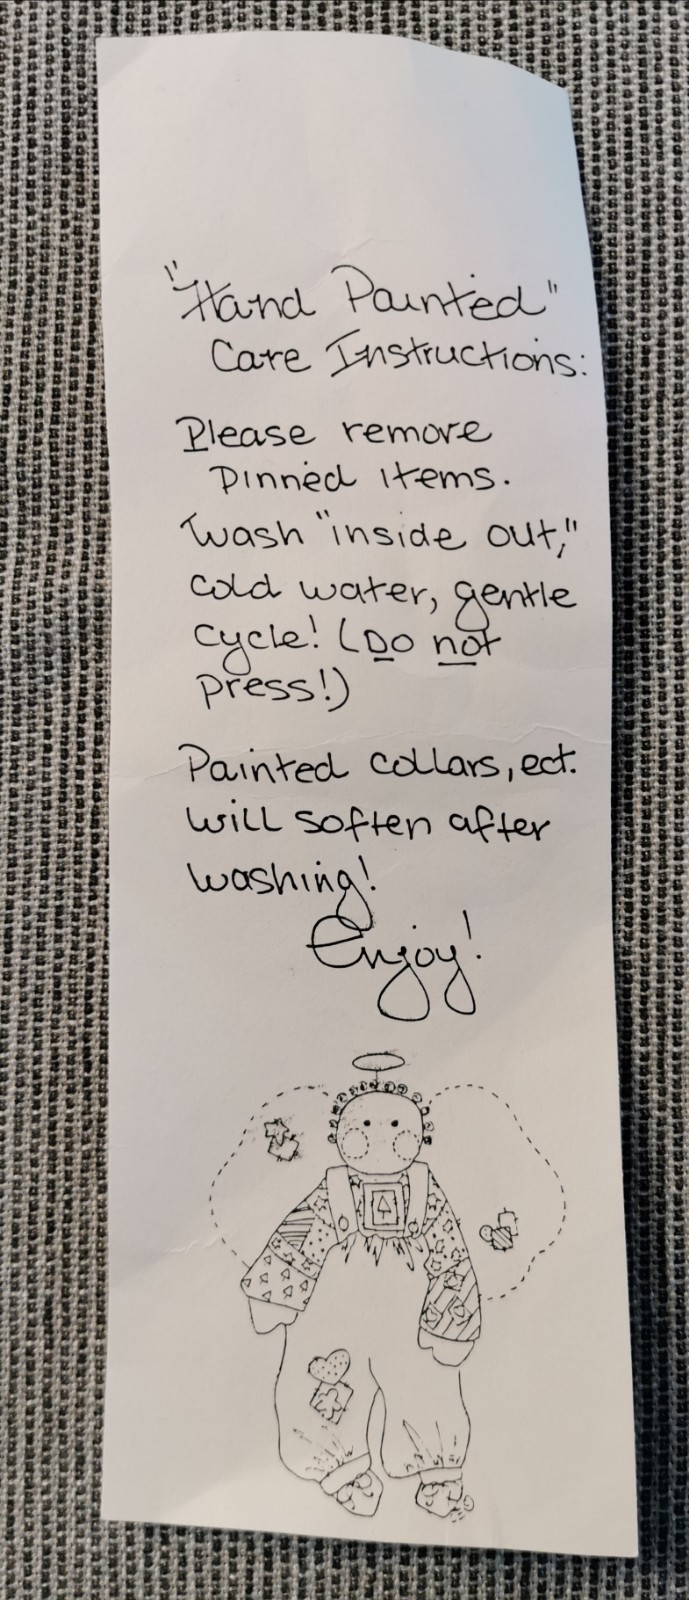 "Hand Painted"
Care Instructions:
Please remove
pinned items.
Wash "inside out,"
cold water, gentle
cycle! (Do not
press!)
Painted collars, ect.
will soften after
washing!
Enjoy!